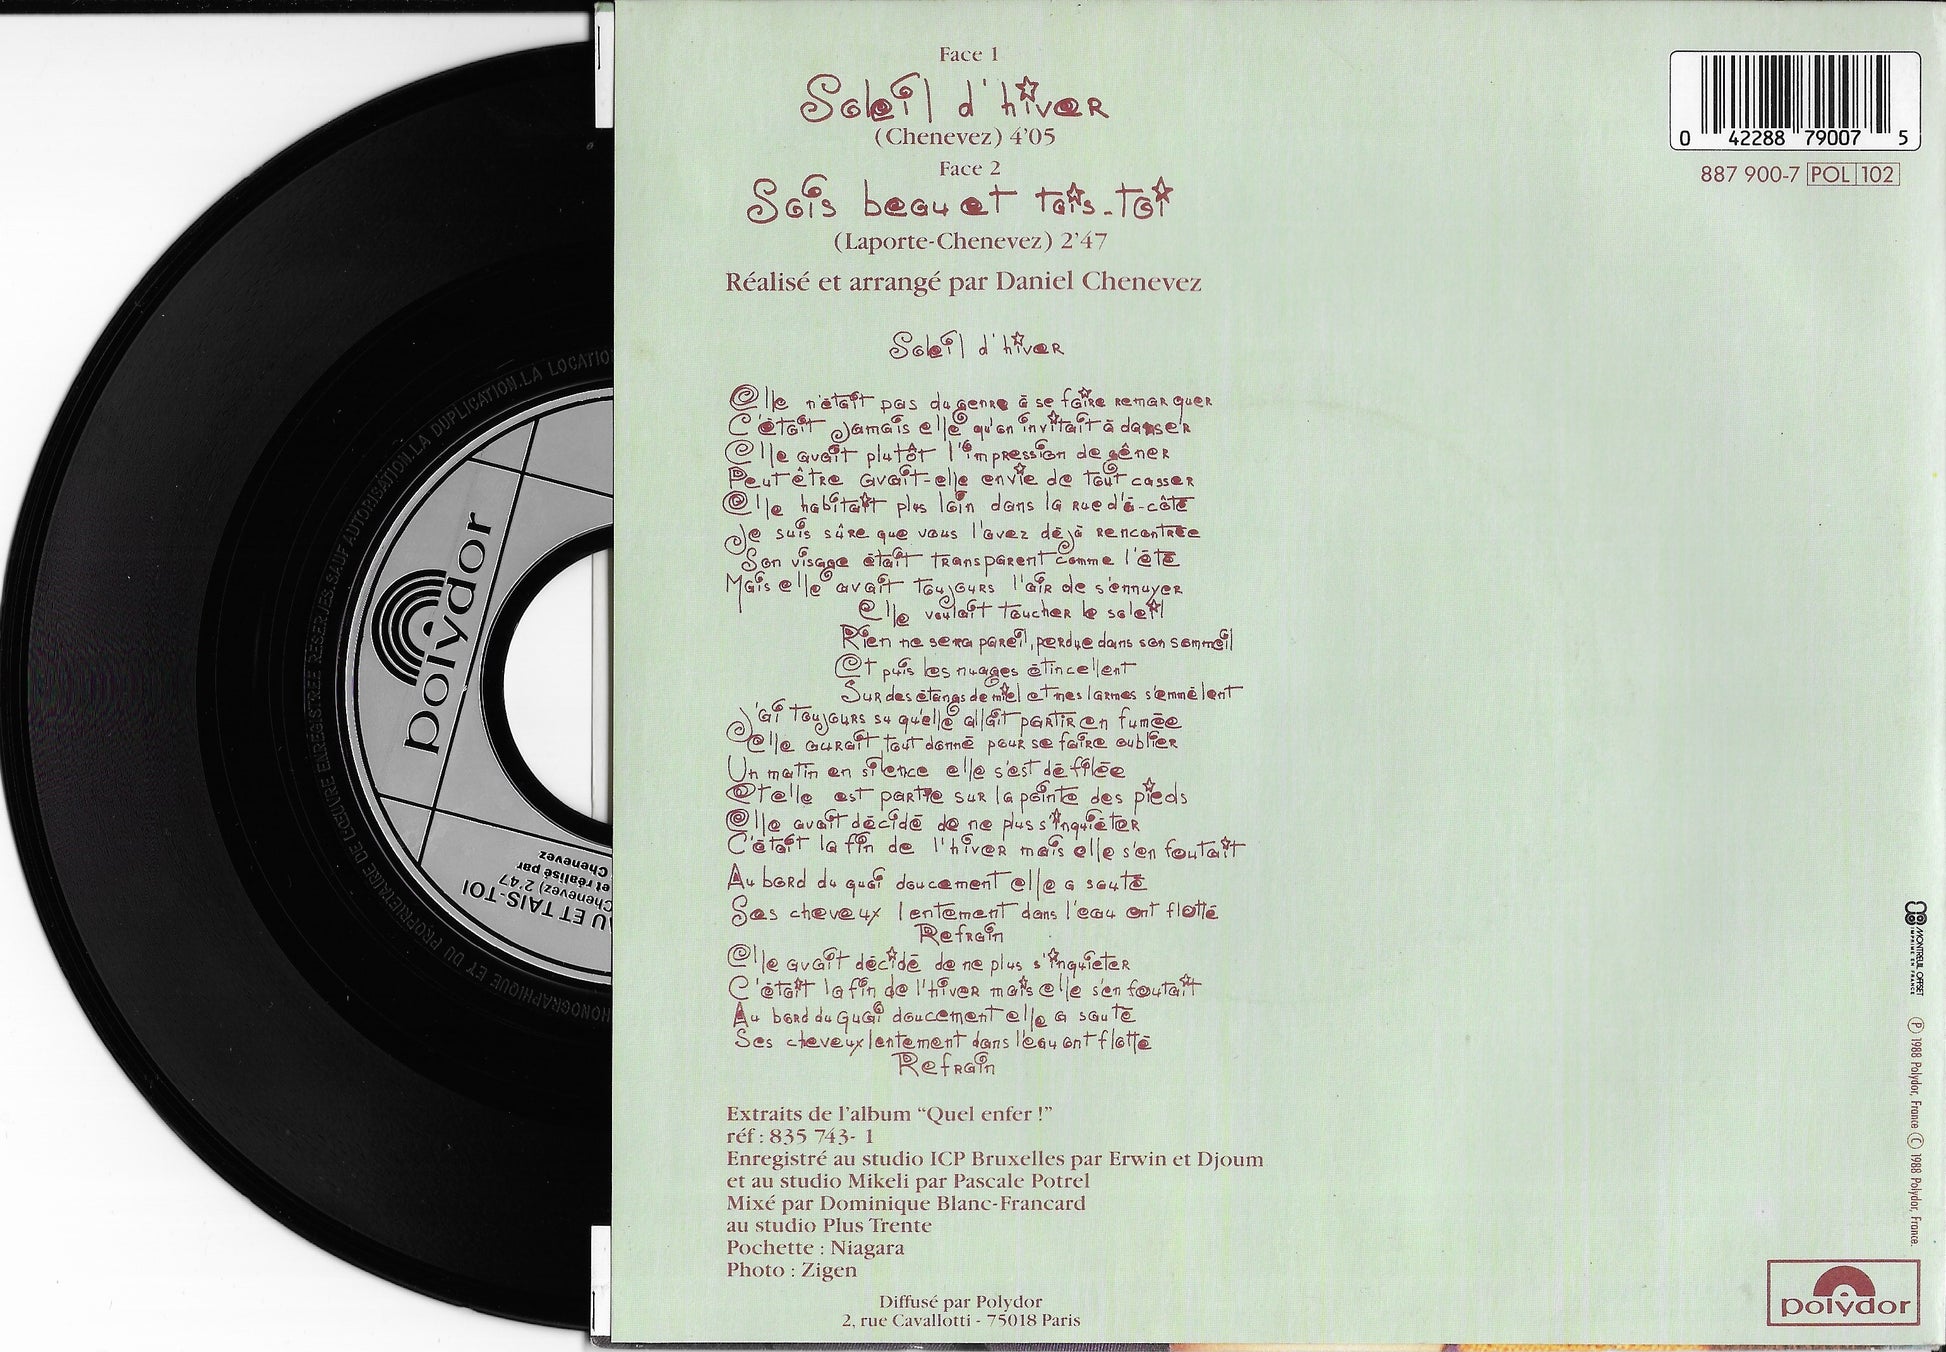 Face 1
Soleil d'hiver
(Chenevez) 4'05
Face 2
Sois beau et tais-toi
(Laporte-Chenevez) 2'47
Réalisé et arrangé par Daniel Chenevez
Soleil d'hiver
Elle n'était pas du genre à se faire remarquer
C'était jamais elle qu'on invitait à danser
Elle avait plutôt l'impression de gêner
Peut être avait-elle envie de tout casser
Elle habitait plus loin dans la rue d'à-côté
Je suis sûre que vous l'avez déjà rencontrée
Son visage était transparent comme l'été
Mais elle avait toujours l'air de s'ennuyer
Elle voulait toucher le soleil
Rien ne sera pareil, perdue dans son sommeil
Et puis les nuages étincellent
Sur des étangs de miel et mes larmes s'emmêlent
J'ai toujours su qu'elle allait partir en fumée
Elle aurait tout donné pour se faire oublier
Un matin en silence elle s'est défilée
Et elle est partie sur la pointe des pieds
Elle avait décidé de ne plus s'inquiéter
C'était la fin de l'hiver mais elle s'en foutait
Au bord du quai doucement elle a sauté
Ses cheveux lentement dans l'eau ont flotté
Refrain
Elle avait décidé de ne plus s'inquiéter
C'était la fin de l'hiver mais elle s'en foutait
Au bord du quai doucement elle a sauté
Ses cheveux lentement dans l'eau ont flotté
Refrain
Extraits de l'album "Quel enfer !"
réf : 835 743- 1
Enregistré au studio ICP Bruxelles par Erwin et Djoum
et au studio Mikeli par Pascale Potrel
Mixé par Dominique Blanc-Francard
au studio Plus Trente
Pochette : Niagara
Photo : Zigen
Diffusé par Polydor
2, rue Cavallotti - 75018 Paris
0 42288 79007 5
887 900-7 POL 102
MONTREUIL OFFSET
IMPRIMÉ EN FRANCE
Ⓟ 1988 Polydor, France © 1988 Polydor, France.
polydor
polydor
AU ET TAIS-TOI
Chenevez) 2'47
et réalisé par
Chenevez
HONOGRAPHIQUE ET DU PROPRIETAIRE DE L'ŒUVRE ENREGISTREE RESERVES. SAUF AUTORISATION. LA DUPLICATION. LA LOCATION